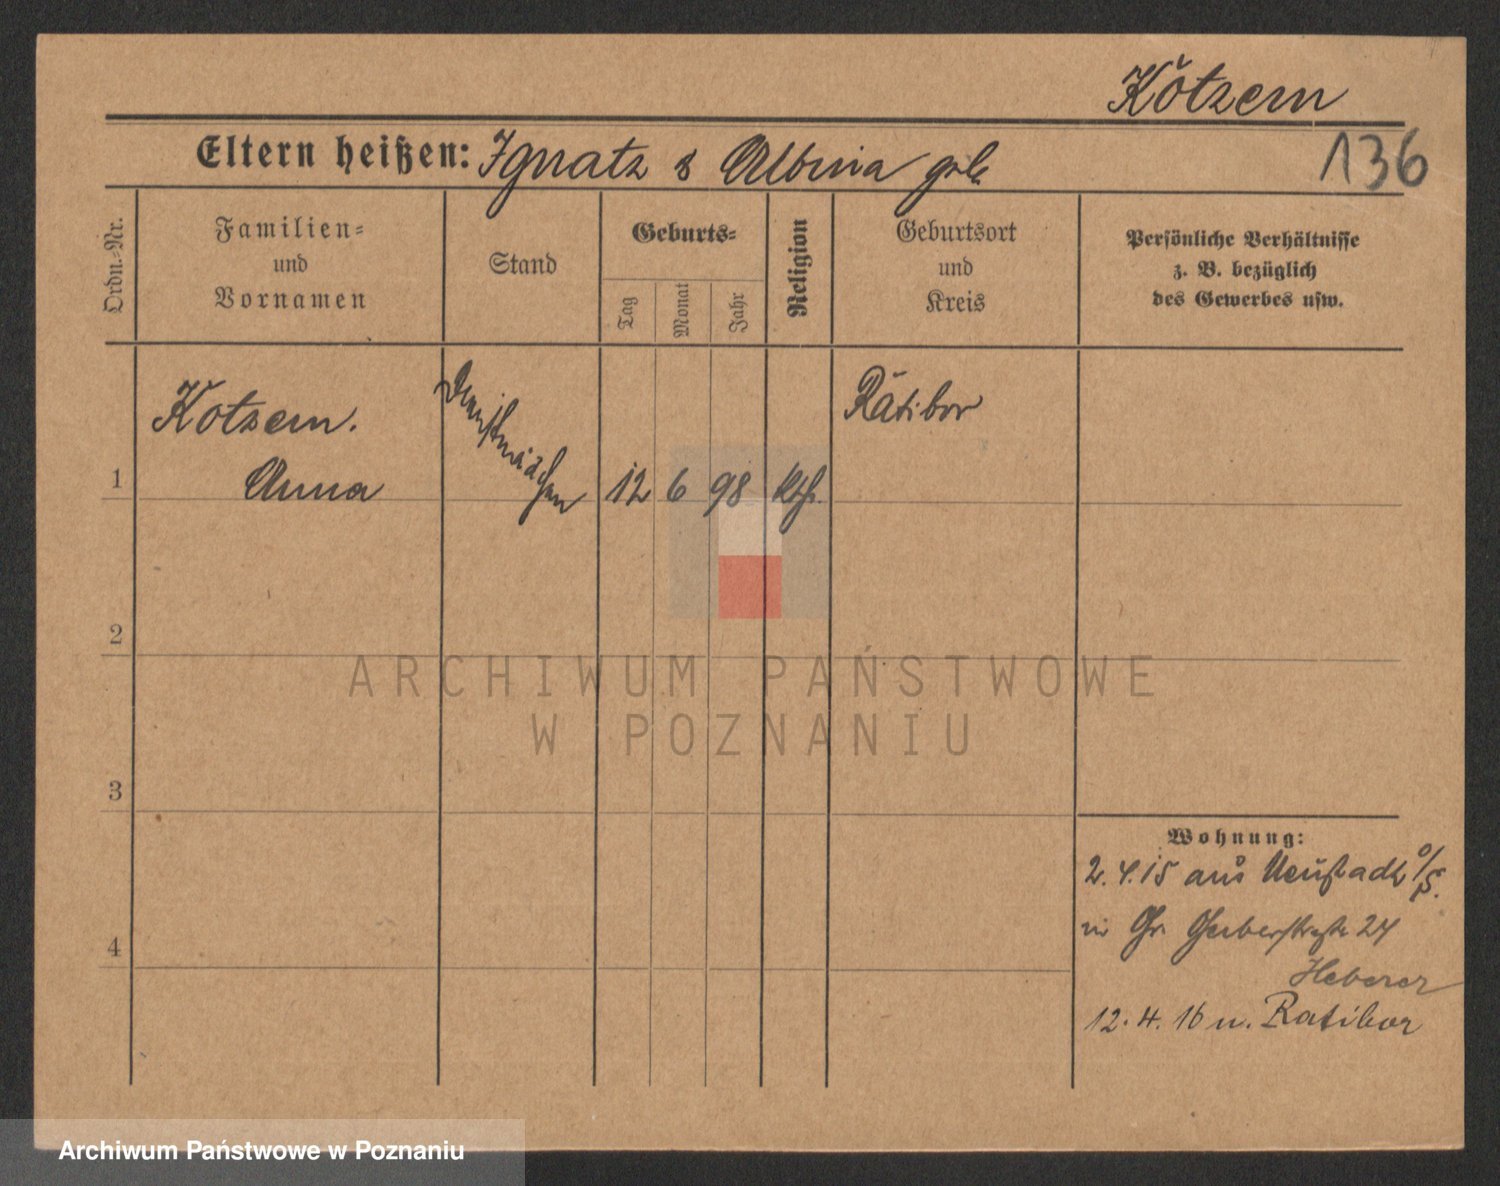 Kötzem
136
Eltern heißen: Ignatz & Albina geb.
Ordn.-Nr.
Familien-
und
Vornamen
Stand
Geburts-
Tag
Monat
Jahr
Religion
Geburtsort
und
Kreis
Persönliche Verhältnisse
z. B. bezüglich
des Gewerbes usw.
1
Kotzem.
Anna
Dienstmädchen
12
6
98
Kth.
Ratibor
2
3
4
Wohnung:
2.4.15 aus Neustadt O/S.
in Gr. Gerberstraße 24
Heberer
12.4.16 n. Ratibor
ARCHIWUM PAŃSTWOWE
W POZNANIU
Archiwum Państwowe w Poznaniu